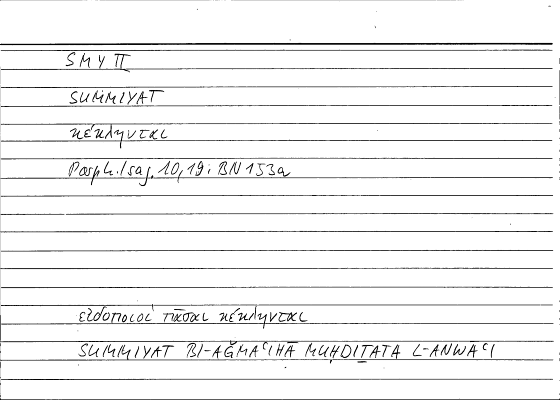 SMY II
SUMMIYAT
κέκληνται
Porph. Isag. 10,19; BN 153a
εἰδοποιοὶ πᾶσαι κέκληνται
SUMMIYAT BI-AǦMAʿIHĀ MUḤDIṮATA L-ANWAʿI